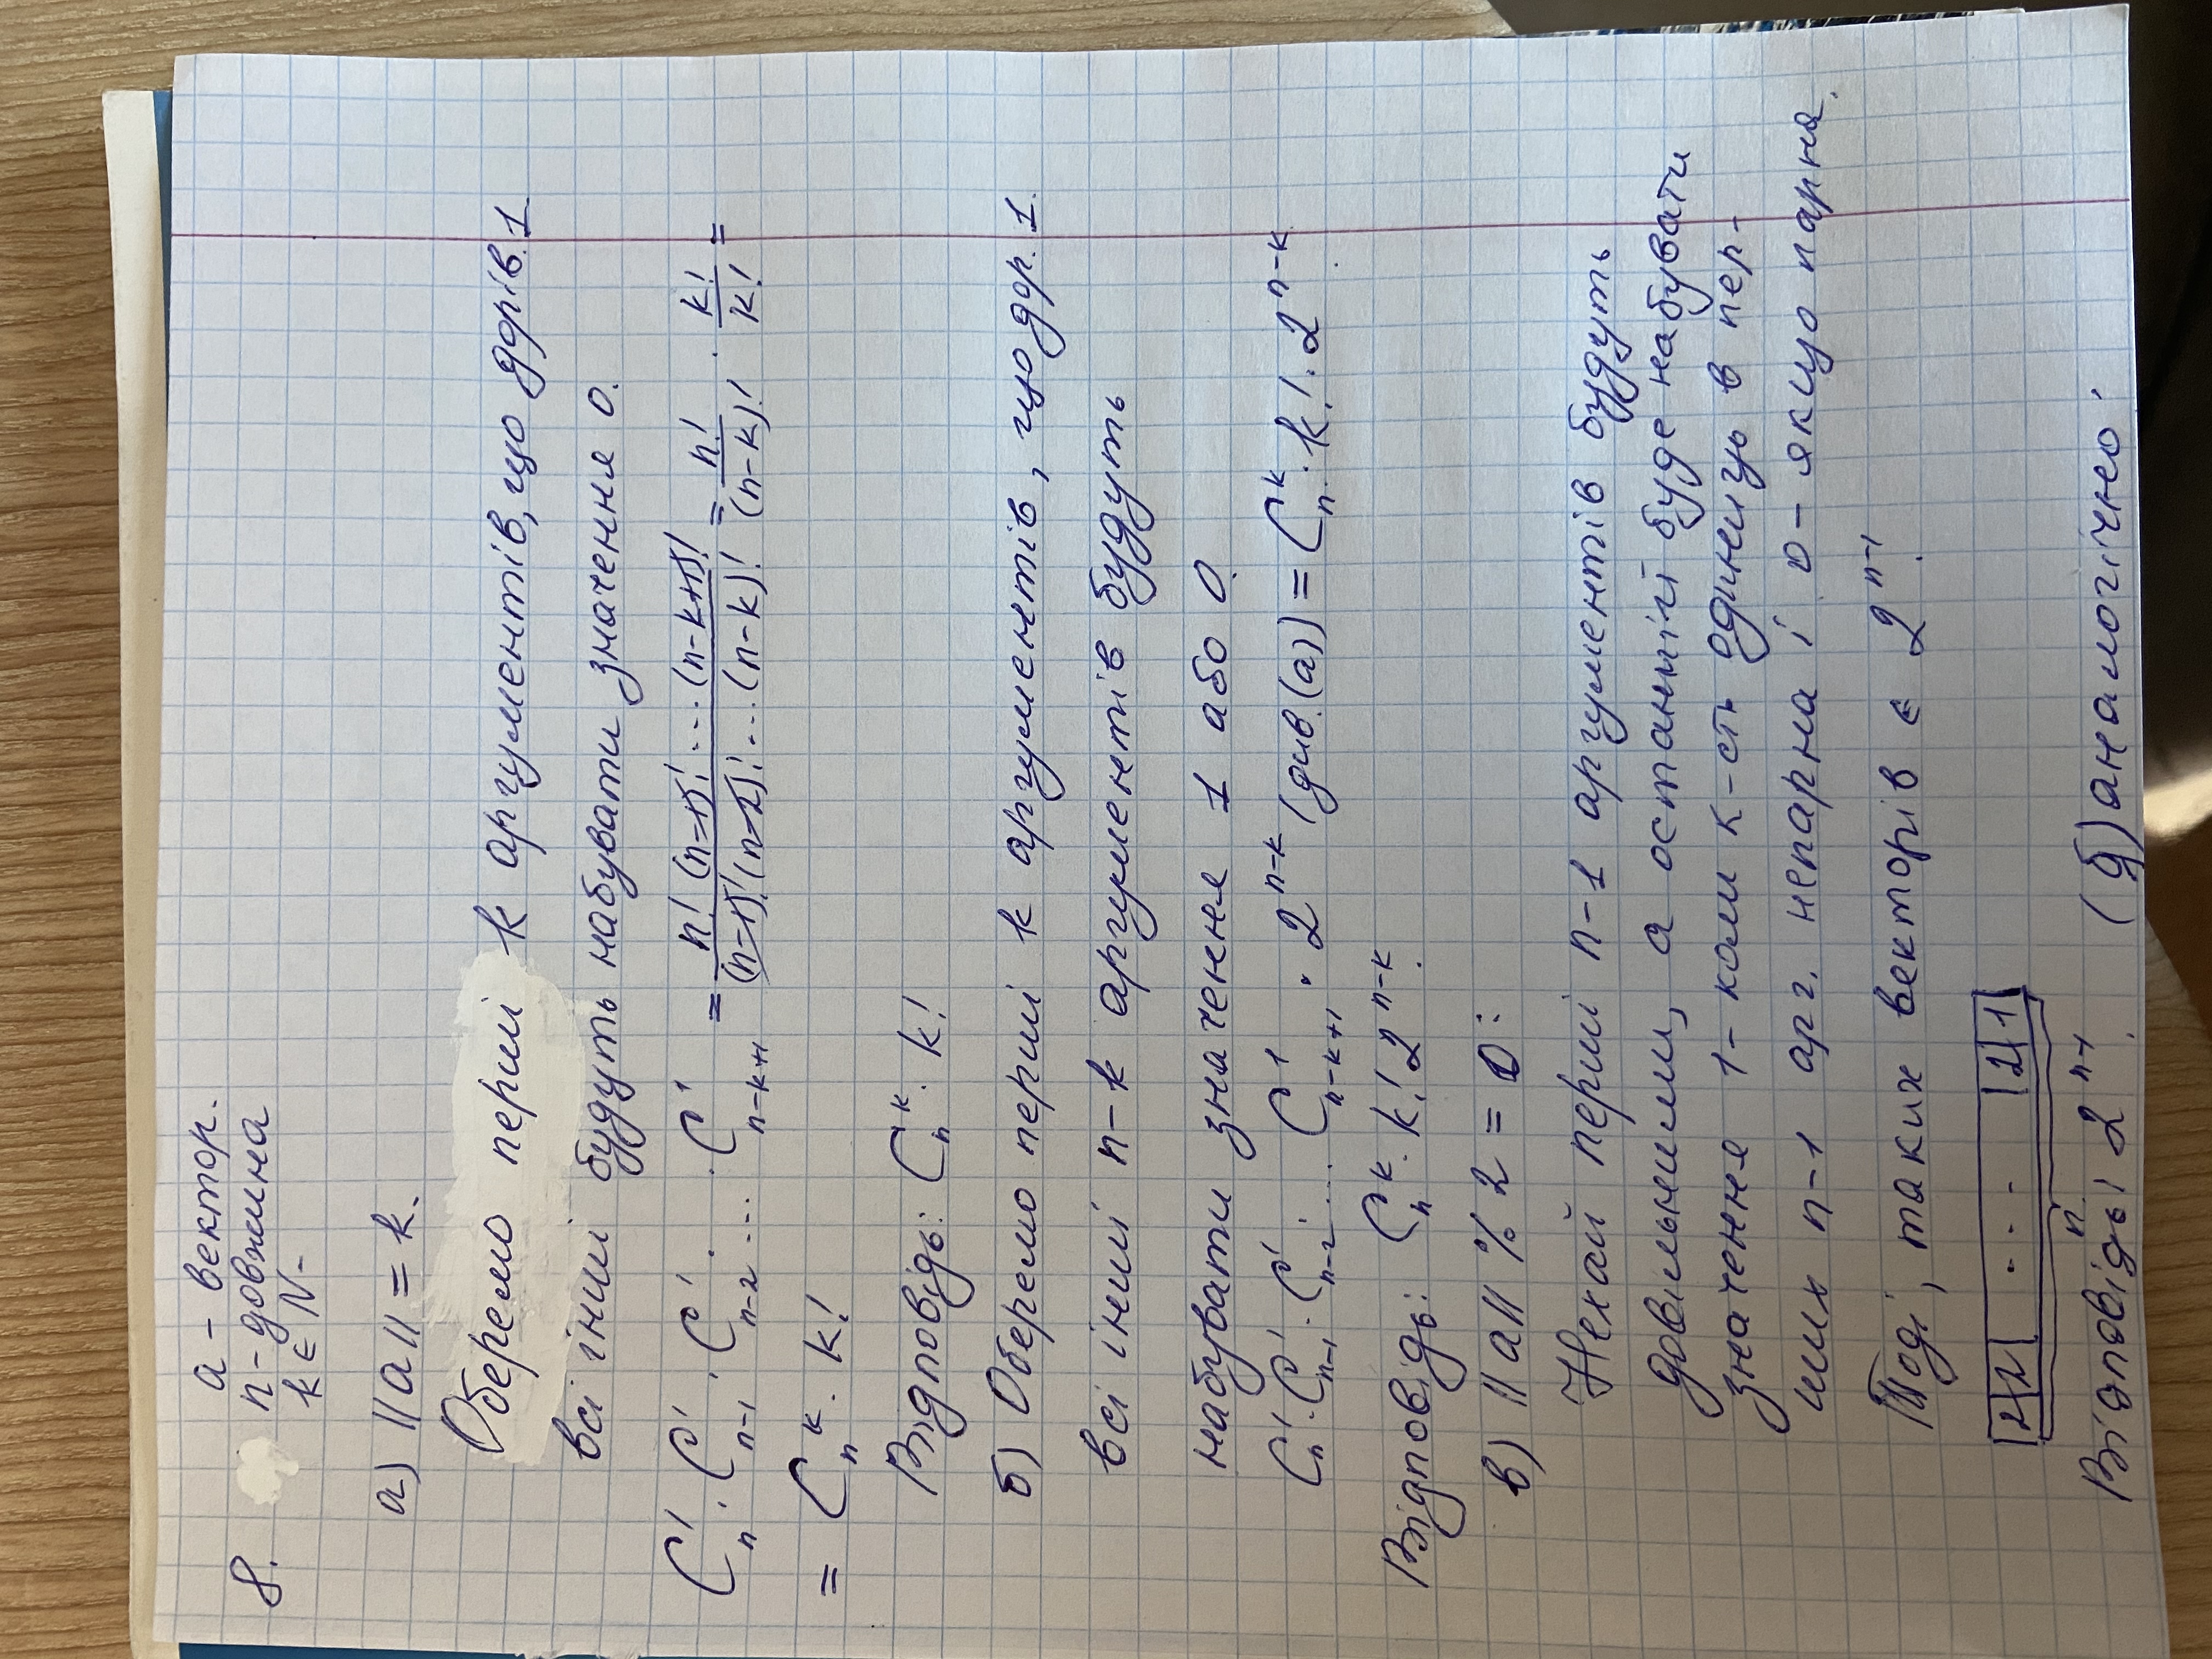 a - вектор.
8. n - довжина
k ∈ N -
а) ||a|| = k.
Оберемо перші k аргументів, що дорів. 1.
всі інші будуть набувати значення 0.
C¹ₙ · C¹ₙ₋₁ · C¹ₙ₋₂ · ... · C¹ₙ₋ₖ₊₁ = n! (n-1)! ... (n-k+1)! / (n-1)! (n-2)! ... (n-k)! = n! / (n-k)! · k! / k! =
= Cₙᵏ · k!
Відповідь: Cₙᵏ · k!
б) Оберемо перші k аргументів, що дор. 1.
всі інші n-k аргументів будуть
набувати значення 1 або 0.
C¹ₙ · C¹ₙ₋₁ · C¹ₙ₋₂ · ... C¹ₙ₋ₖ₊₁ · 2ⁿ⁻ᵏ (див. (а)) = Cₙᵏ · k! · 2ⁿ⁻ᵏ.
Відповідь: Cₙᵏ · k! 2ⁿ⁻ᵏ.
в) ||a|| % 2 = 0:
Нехай перші n-1 аргументів будуть
довільними, а останній буде набувати
значення 1 - коли к-сть одиниць в пер-
ших n-1 арг. непарна і 0 - якщо парна.
Тоді, таких векторів є 2ⁿ⁻¹.
|2|2| ... |2|1|
n
Відповідь: 2ⁿ⁻¹. (д) аналогічно.